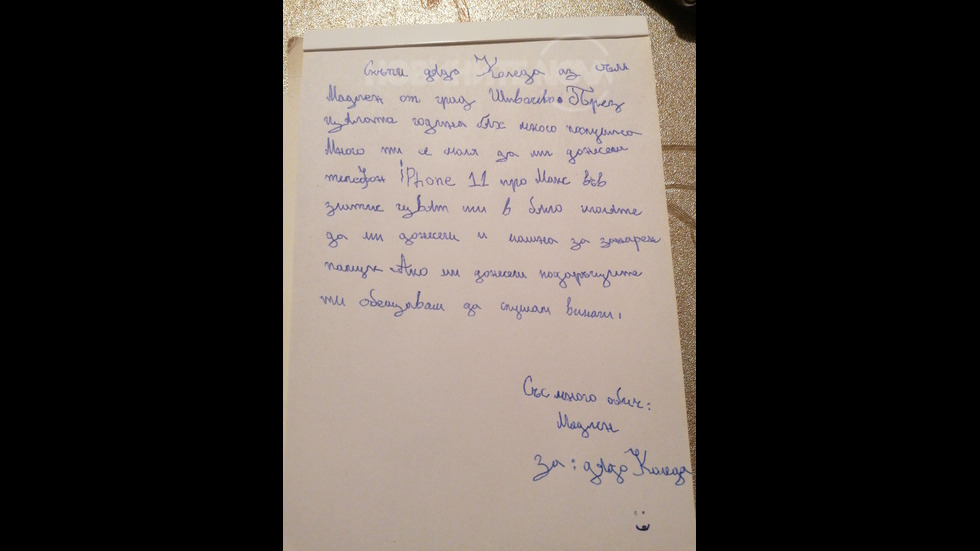 Скъпи дядо Коледа аз съм
Мадлен от град Шивачево. През
цялата година бях много послушна
Много ти се моля да ми донесеш
телефон iPhone 11 про Макс във
златик цвят ми в бяло моляте
да ми донесеш и машна за захарен
памук Ако ми донесеш подаръците
ти обещавам да слушам винаги.
Със много обич:
Мадлен
За: дядо Коледа